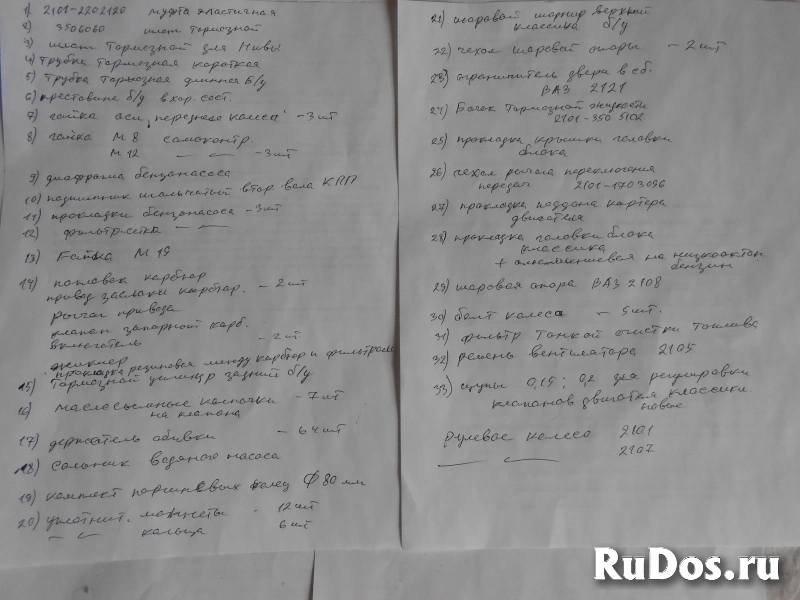 1) 2101-2202120 муфта эластичная
2) 3506060 шланг тормозной
3) шланг тормозной для Нивы
4) трубка тормозная короткая
5) трубка тормозная длинная б/у
6) крестовина б/у в хор. сост.
7) гайка оси переднего колеса - 3 шт
8) гайка М 8 самоконтр
М 12 — — - 3 шт
9) диафрагма бензонасоса
10) подшипник игольчатый втор вала КПП
11) прокладки бензонасоса - 3 шт
12) фильтр сетка — —
13) гайка М 19
14) поплавок карбюр
привод заслонки карбюр. - 2 шт
рычаг привода
клапан запорной карб.
включатель - 2 шт.
жиклер
прокладка резиновая между карбюр и фильтром
15) тормозной цилиндр задний б/у
16) маслосъемные колпачки - 7 шт
на клапана
17) держатель обивки - 64 шт
18) сальник водяного насоса
19) комплект поршневых колец Ф 80 мм
20) уплотнит. манжеты - 12 шт
— — кольца 6 шт
21) шаровой шарнир верхний
классика б/у
22) чехол шаровой опоры - 2 шт
23) ограничитель двери в сб.
ВАЗ 2121
24) Бачок тормозной жидкости
2101-350 5102
25) прокладка крышки головки
блока
26) чехол рычага переключения
передач 2101-1703096
27) прокладка поддона картера
двигателя
28) прокладка головки блока
классика
+ на низкооктан.
бензин
29) шаровая опора ВАЗ 2108
30) болт колеса - 5 шт.
31) фильтр тонкой очистки топлива
32) ремень вентилятора 2105
33) щупы 0,15; 0,2 для регулировки
клапанов двигателя классики.
новые
Рулевое колесо 2101
— — 2107
RuDos.ru